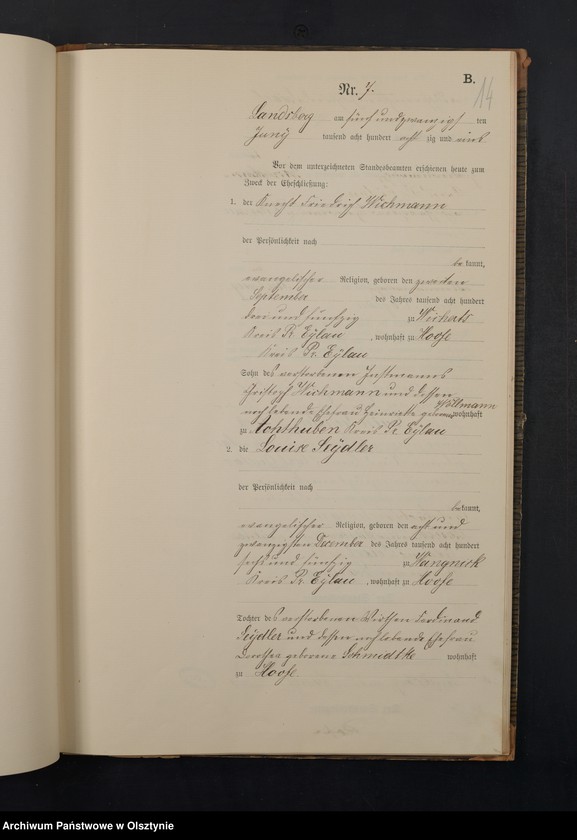 B.
14
Nr. 7.
Landsberg am fünf und zwanzigsten
Juny tausend acht hundert acht zig und eins
Vor dem unterzeichneten Standesbeamten erschienen heute zum
Zweck der Eheschließung:
1. der Knecht Friedrich Wichmann
der Persönlichkeit nach
be kannt,
evangelischer Religion, geboren den zweiten
September des Jahres tausend acht hundert
drei und fünfzig zu Wicherts
Kreis Pr. Eylau, wohnhaft zu Hoofe
Kreis Pr. Eylau
Sohn des verstorbenen Instmanns
Christoph Wichmann und dessen
noch lebende Ehefrau Henriette geborne wohnhaft
zu Achthuben Kreis Pr. Eylau
2. die Louise Seydler
der Persönlichkeit nach
bekannt,
evangelischer Religion, geboren den acht und
zwanzigsten December des Jahres tausend acht hundert
sechs und fünfzig zu Wangnick
Kreis Pr. Eylau, wohnhaft zu Hoofe
Tochter des verstorbenen Wirthen Ferdinand
Seydler und dessen noch lebende Ehefrau
Dorothea geborene Schmidtke wohnhaft
zu Hoofe
Archiwum Państwowe w Olsztynie